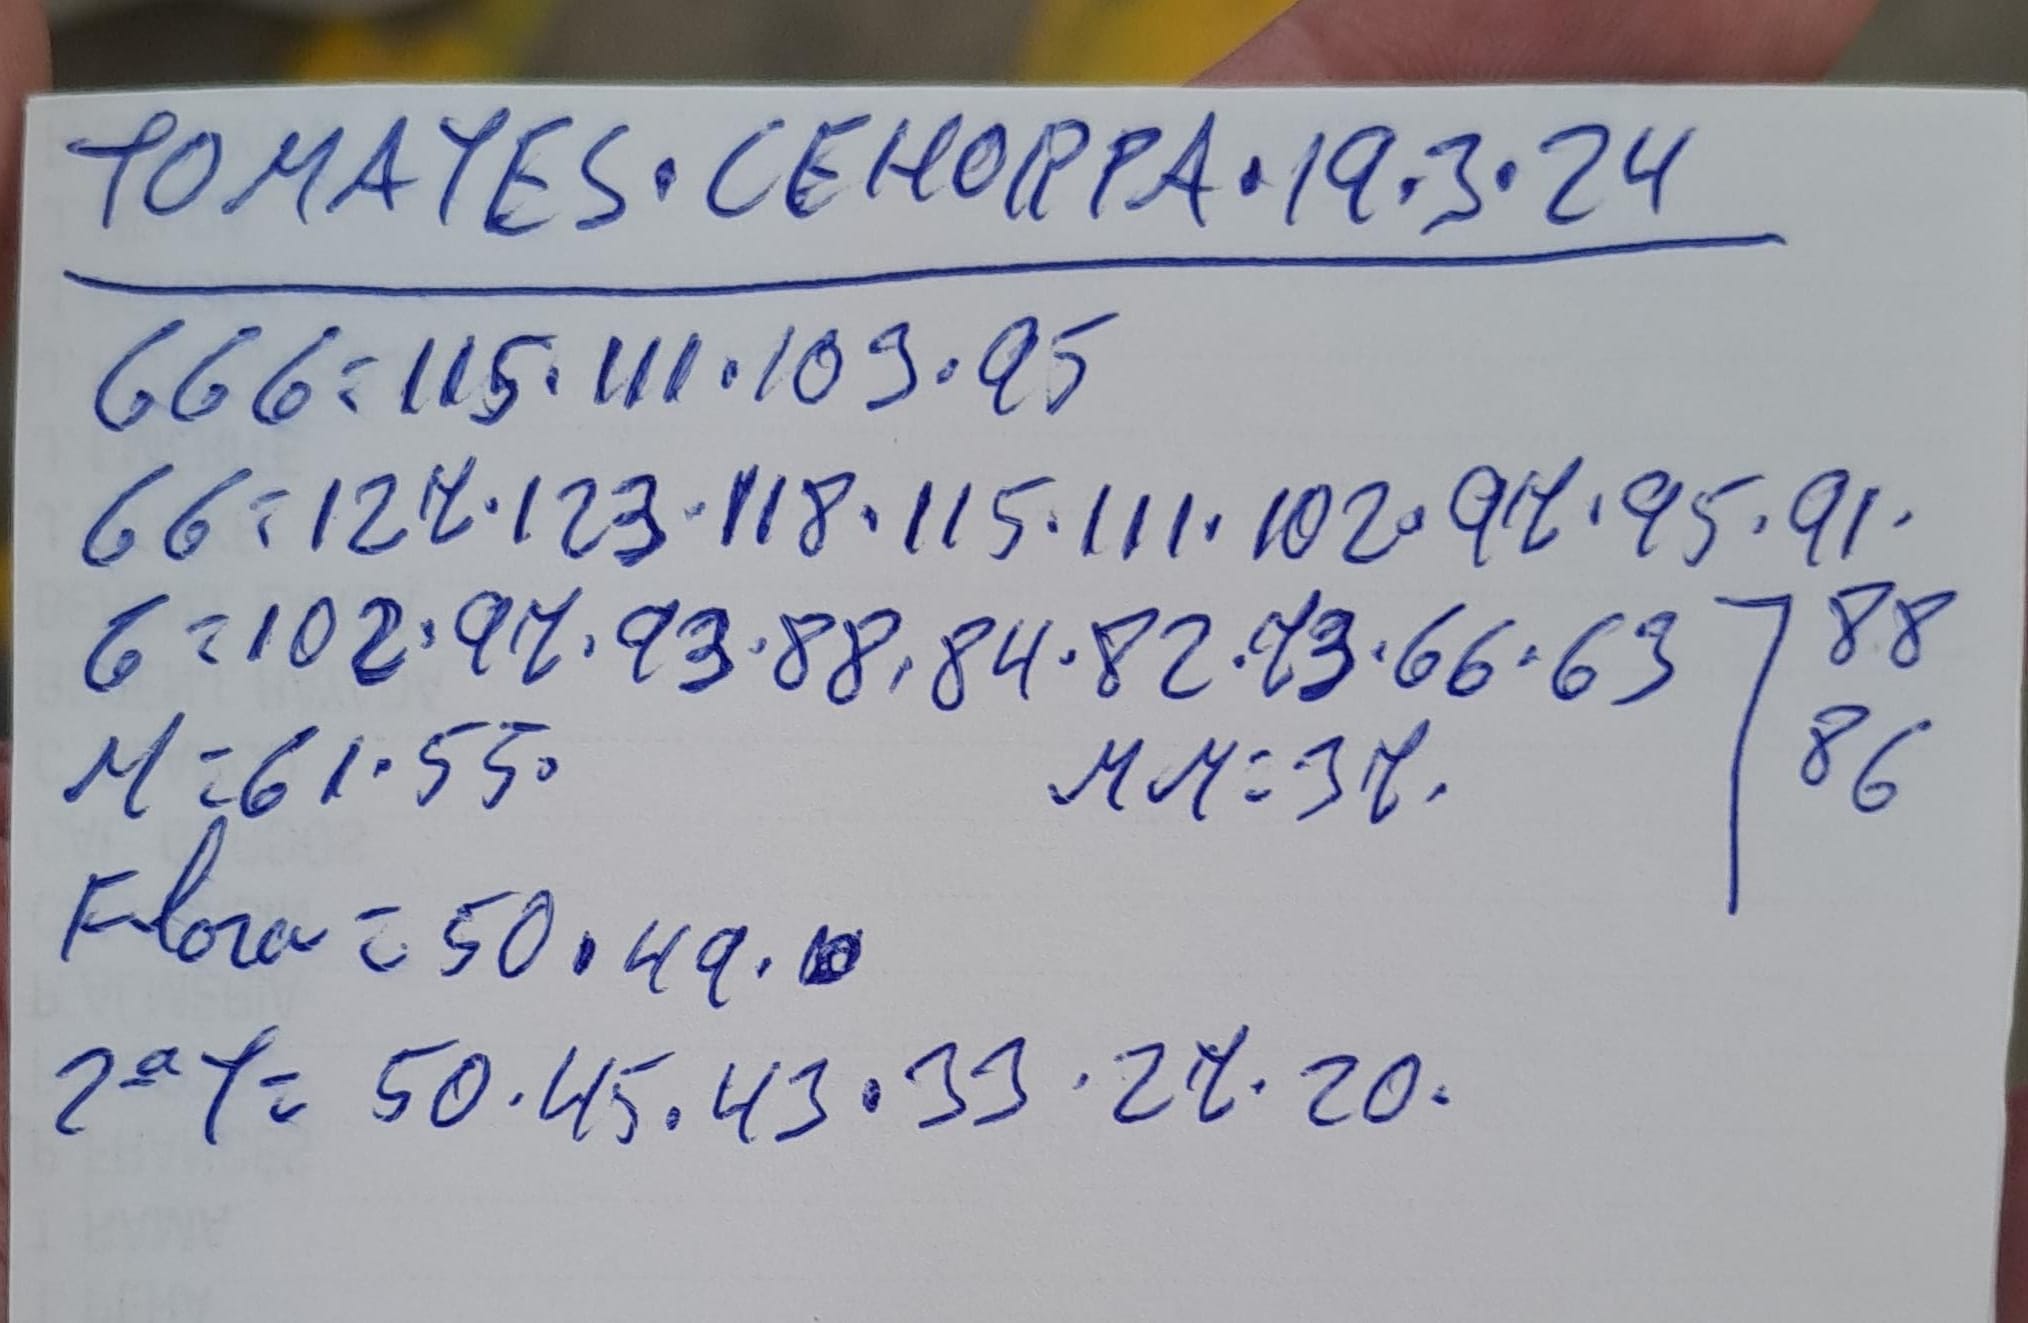 TOMATES · CEHORPA · 19.3.24
GGG = 115 · 111 · 103 · 95
GG = 127 · 123 · 118 · 115 · 111 · 102 · 97 · 95 · 91 ·
G = 102 · 97 · 93 · 88 · 84 · 82 · 73 · 66 · 63
88
86
M = 61 · 55 ·
MM = 37 ·
Flora = 50 · 49 ·
2ª T = 50 · 45 · 43 · 33 · 27 · 20 ·